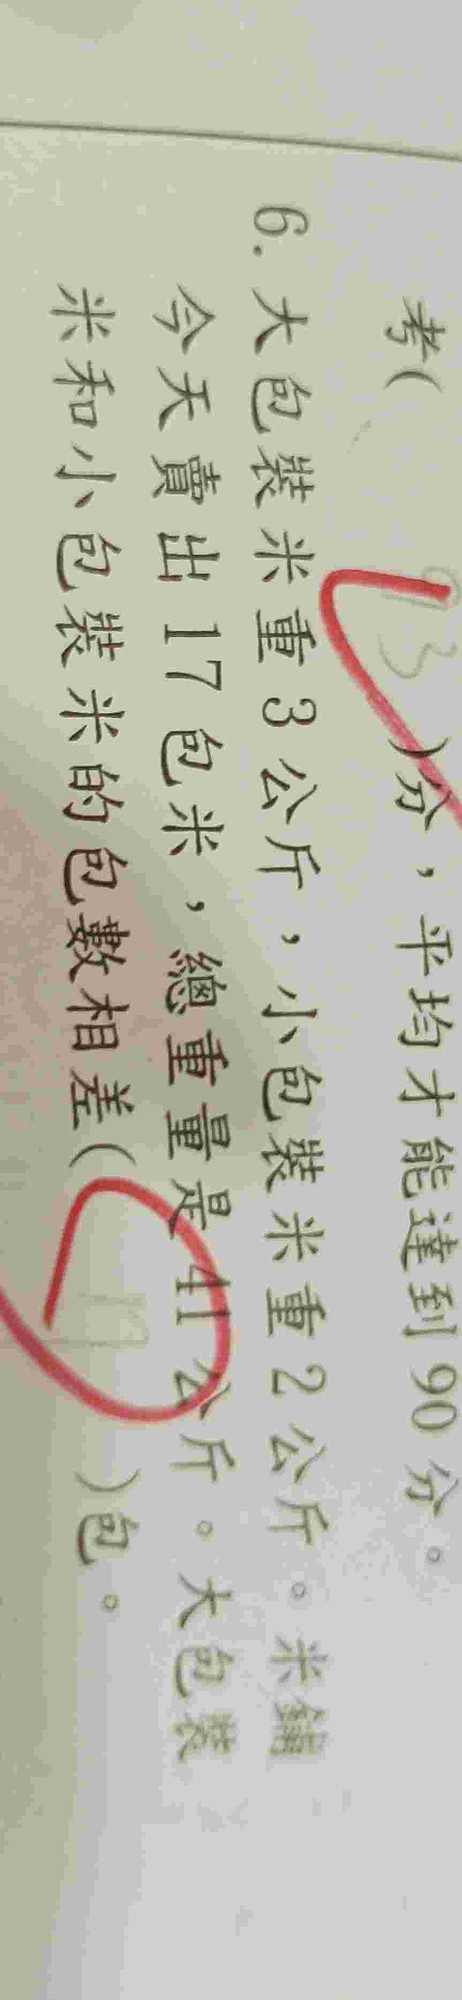 考(93)分，平均才能達到90分。
6. 大包裝米重3公斤，小包裝米重2公斤。米鋪
今天賣出17包米，總重量是41公斤。大包裝
米和小包裝米的包數相差( )包。